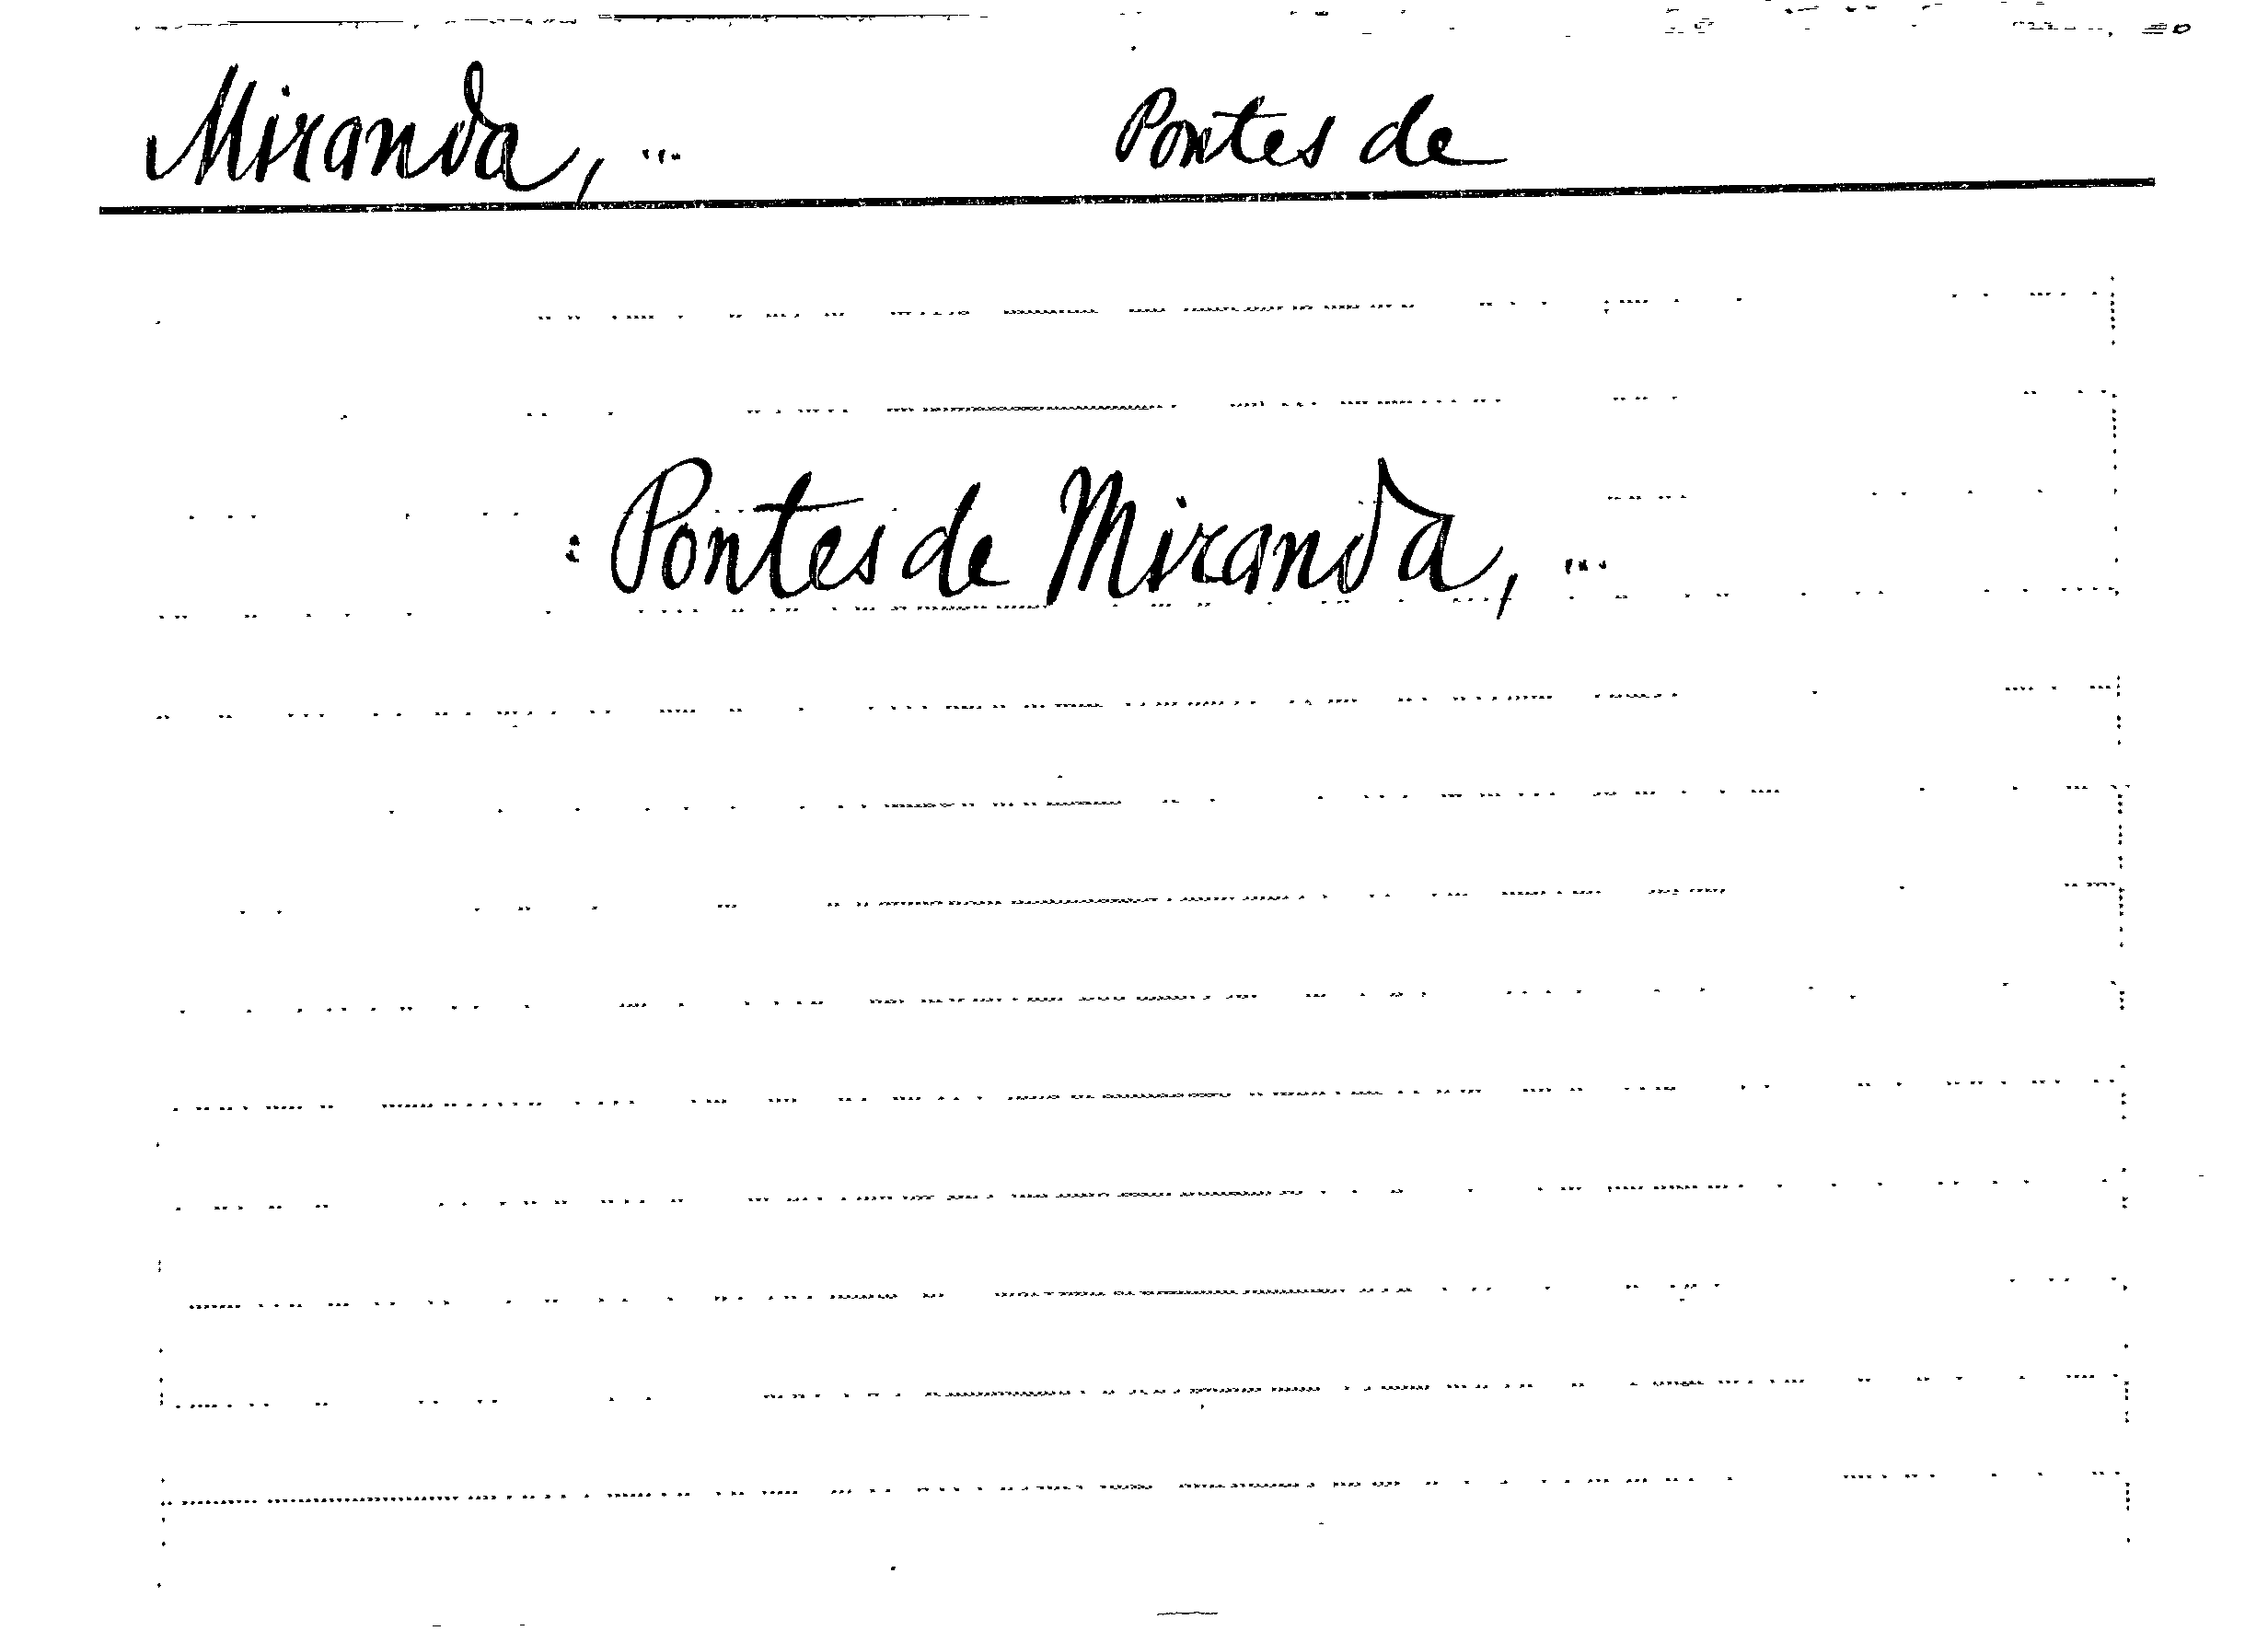 Miranda, ... Pontes de
: Pontes de Miranda, ...